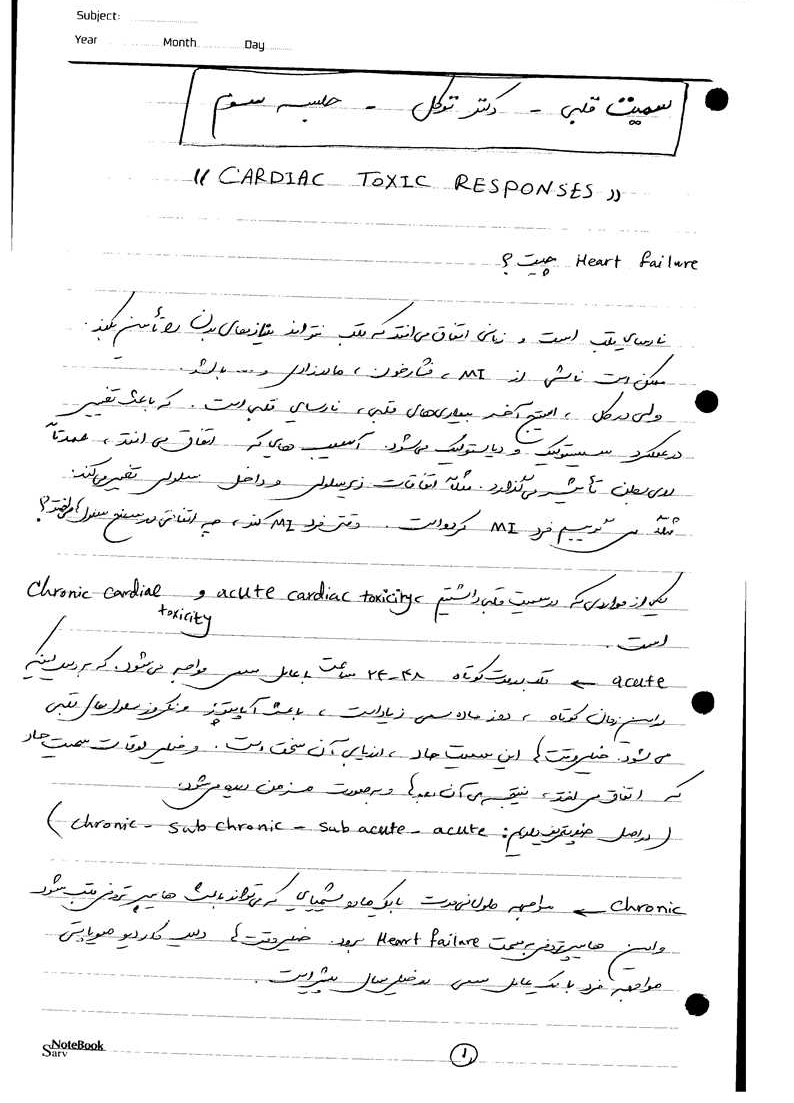 Subject:
Year Month Day
سمیت قلبی - دکتر توکل - جلسه سوم
(( CARDIAC TOXIC RESPONSES ))
Heart failure چیست ؟
نارسایی قلب است و زمانی اتفاق می‌افتد که قلب نتواند نیازهای بدن را تأمین بکند.
ممکن است ناشی از MI ، فشارخون ، و ... باشد.
ولی در کل ، استیج آخر بیماری‌های قلبی ، نارسایی قلبی است . که باعث تغییر
در عملکرد سیستولیک و دیاستولیک می‌شود. آسیب هایی که اتفاق می افتد ، عمدتاً
روی بطن تأثیر می‌گذارد. مثلاً اتفاقات زیرسلولی و داخل سلولی تغییر می‌کند.
مثلاً می گوییم فرد MI کرده‌است . وقتی فرد MI کند ، چه اتفاقی در سطح سلول‌ها می‌افتد؟
یکی از مواردی که در سمیت قلبی داشتیم ، acute cardiac toxicity و chronic cardiac
toxicity
است .
acute ← قلب به مدت کوتاه ۴۸-۲۴ ساعت با عامل سمی مواجه می‌شود. که
در این زمان کوتاه ، دوز ماده سمی زیاد است ، باعث آپاپتوز و نکروز سلول‌های قلبی
می شود. خیلی وقت ها این سمیت حاد ، ارزیابی آن سخت است . و خیلی اوقات سمیت حاد
که اتفاق می افتد ، نتیجه ی آن بعدها و به صورت مزمن دیده می‌شود.
( در اصل چند تعریف داریم : chronic - sub chronic - sub acute - acute )
chronic ← مواجهه طولانی مدت با یک ماده شیمیایی که می‌تواند باعث هایپرتروفی قلب شود
و این هایپرتروفی به سمت Heart failure برود. خیلی وقت ها دلیل کاردیومیوپاتی
مواجهه فرد با یک عامل سمی در خیلی سال پیش است .
NoteBook
Sarv
1